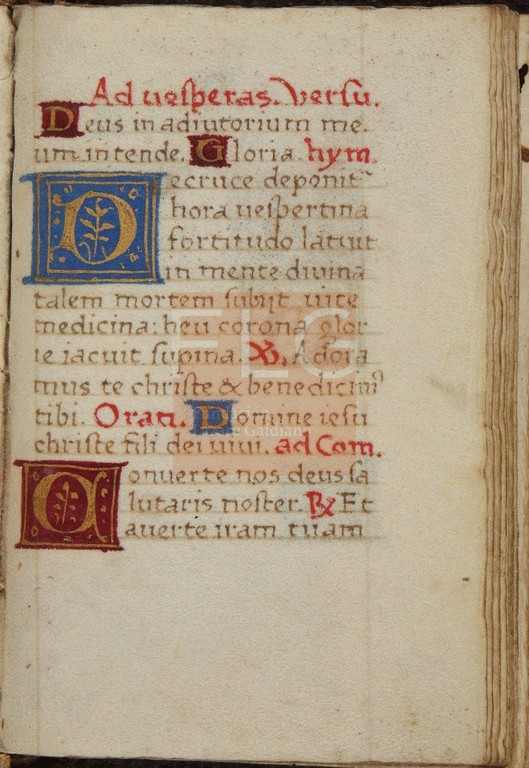 Ad vesperas. Versu.
Deus in adiutorium me
um intende. Gloria. hym.
De cruce deponit᷑
hora vespertina
fortitudo latuit
in mente divina
talem mortem subijt vite
medicina: heu corona glor
ie iacuit supina. ℣. Adora
mus te christe & benedicimꝰ
tibi. Orati. Domine iesu
christe fili dei vivi. ad Com.
Converte nos deus sa
lutaris noster. ℟ Et
averte iram tuam
FLG
Galdiano